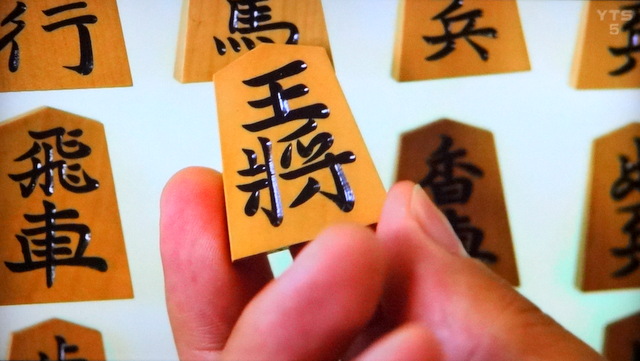 行
馬
兵
YTS
5
王
將
飛
車
香
歩